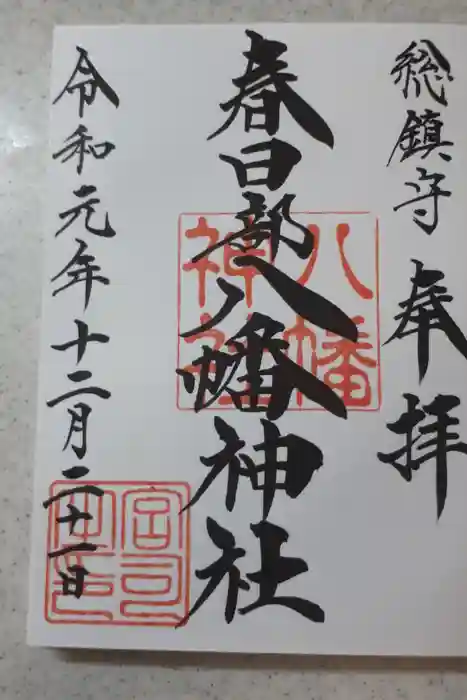 総鎮守 奉拝
春日部八幡神社
八幡神社
令和元年十二月二十一日
宮司之印